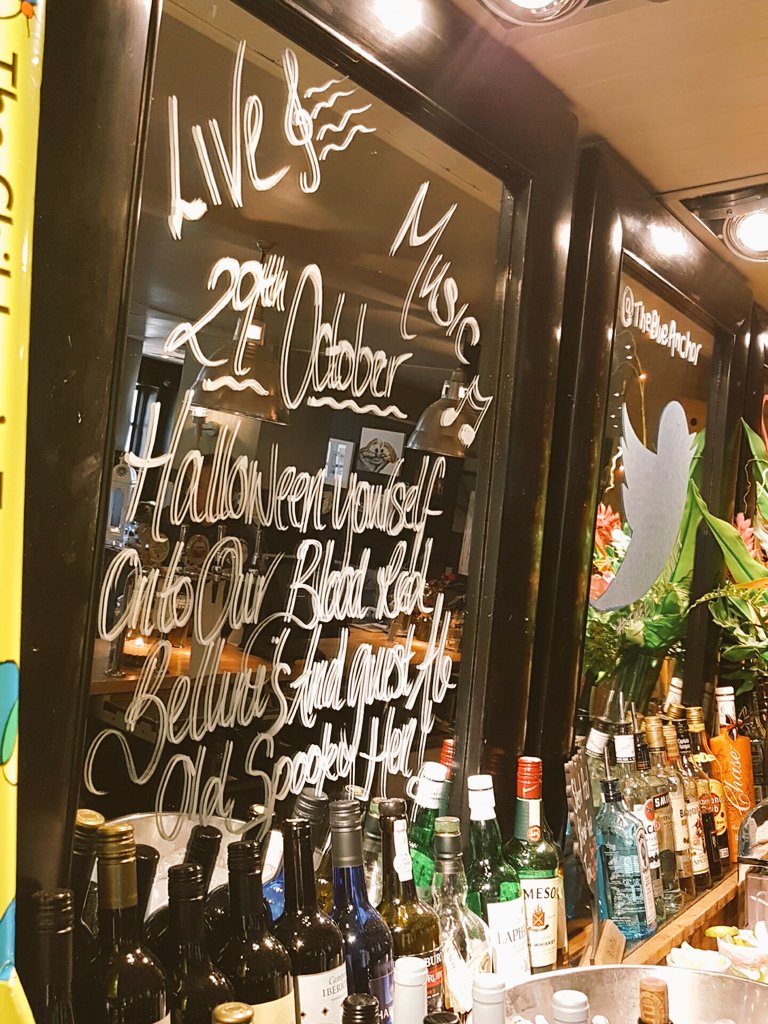 LIVE
Music
29th October
Halloween yourself
onto Our Blood Red
Bellini's And guest Ale
Old Spooked Hen!
@TheBlueAnchor
Chase
JAMESON
WHISKEY
LAPH
IBERI
The Chil